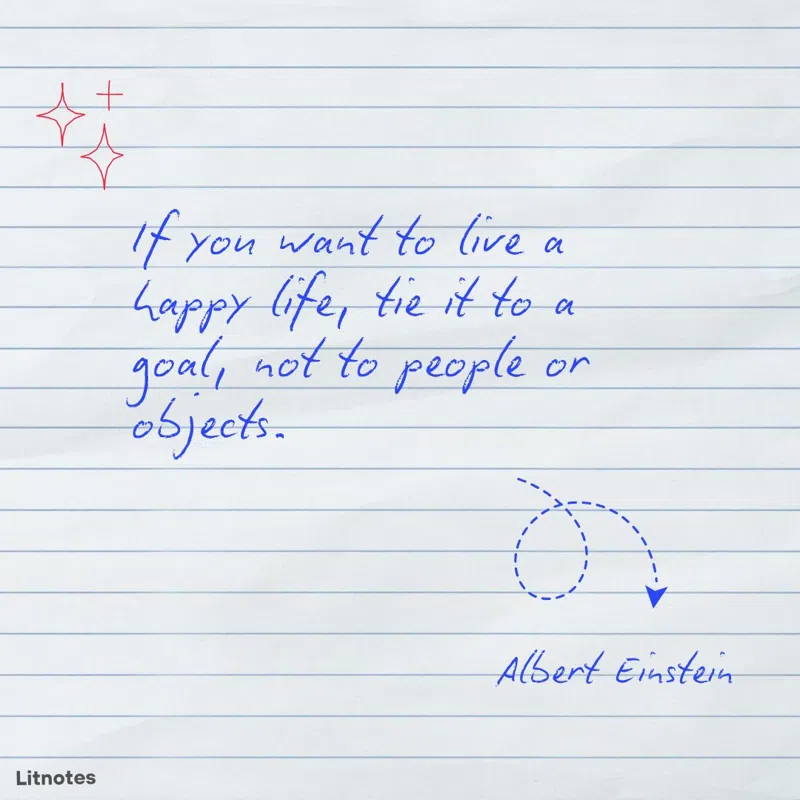 If you want to live a
happy life, tie it to a
goal, not to people or
objects.
Albert Einstein
Litnotes